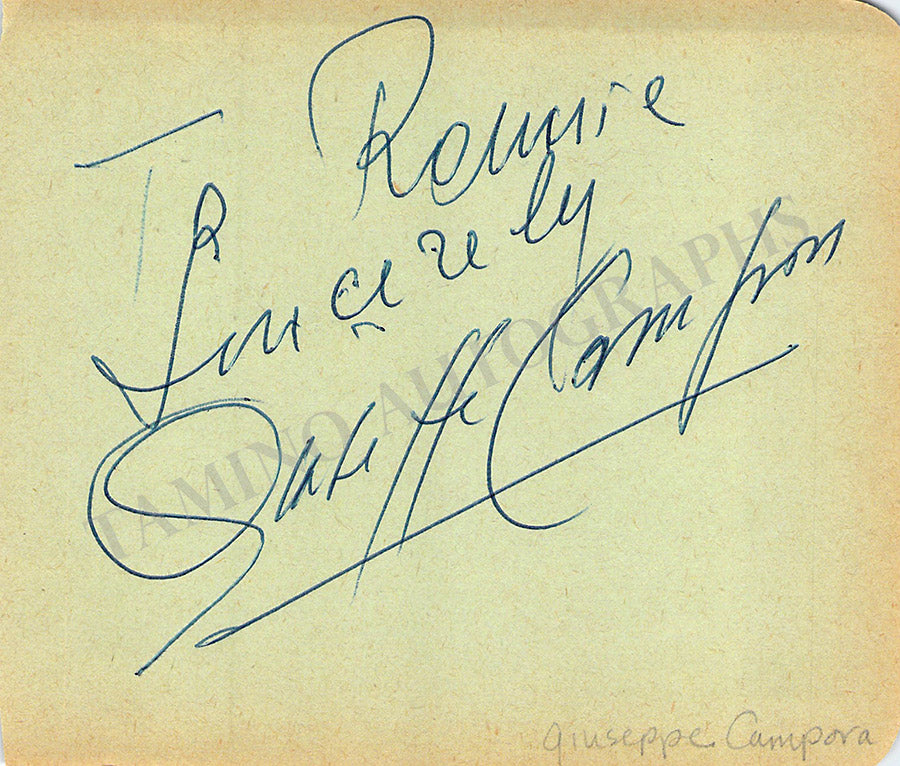 To Ronnie
Sincerely
Giuseppe Campora
TAMINO AUTOGRAPHS
Giuseppe Campora